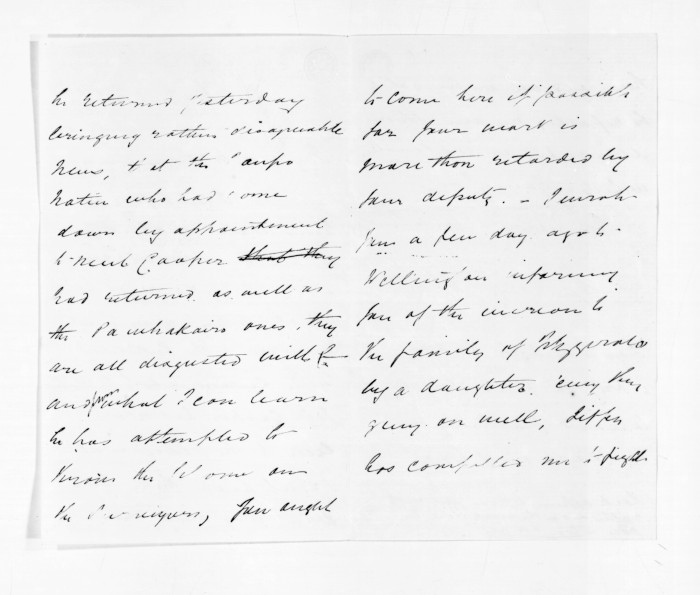 he returned yesterday
bringing rather disagreeable
News, that the Taupo
Natives who had come
down by appointment
to meet Cooper that they
had returned as well as
the Pawhakairo ones, they
are all disgusted with
and from what I can learn
he has attempted to
throw the blame on
the You ought
to come here if possible
for your work is
more than retarded by
your deputy. - I wrote
you a few days ago to
Wellington informing
you of the increase to
the family of Fitzgerald
by a daughter. every thing
going on well,
has compelled me to